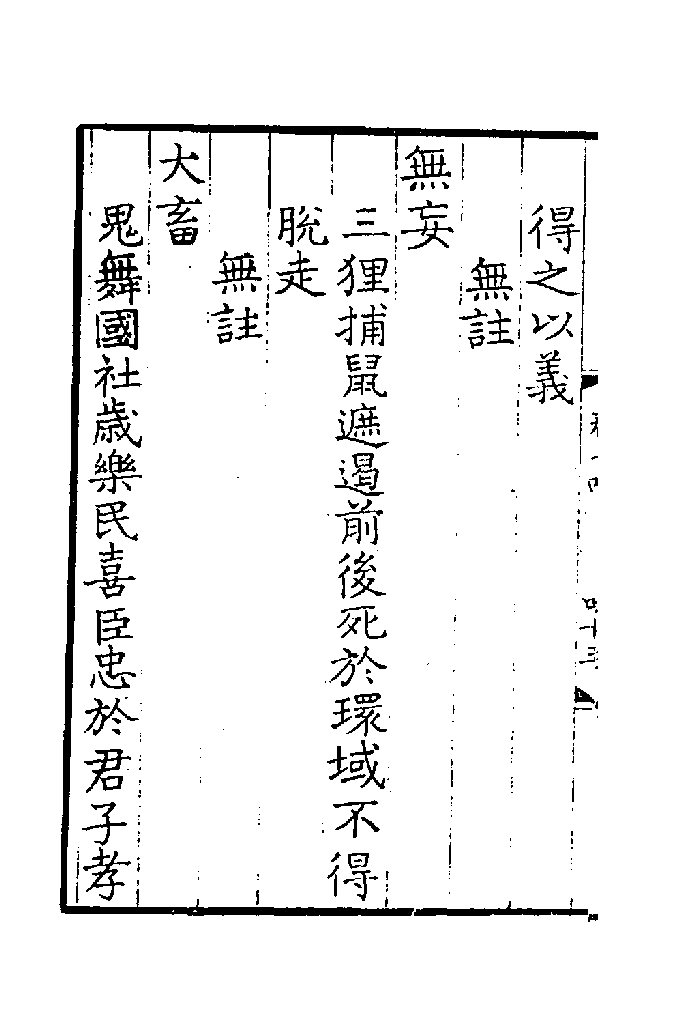 得之以義
無註
無妄
三狸捕鼠遮遏前後死於環域不得
脫走
無註
大畜
鬼舞國社歲樂民喜臣忠於君子孝